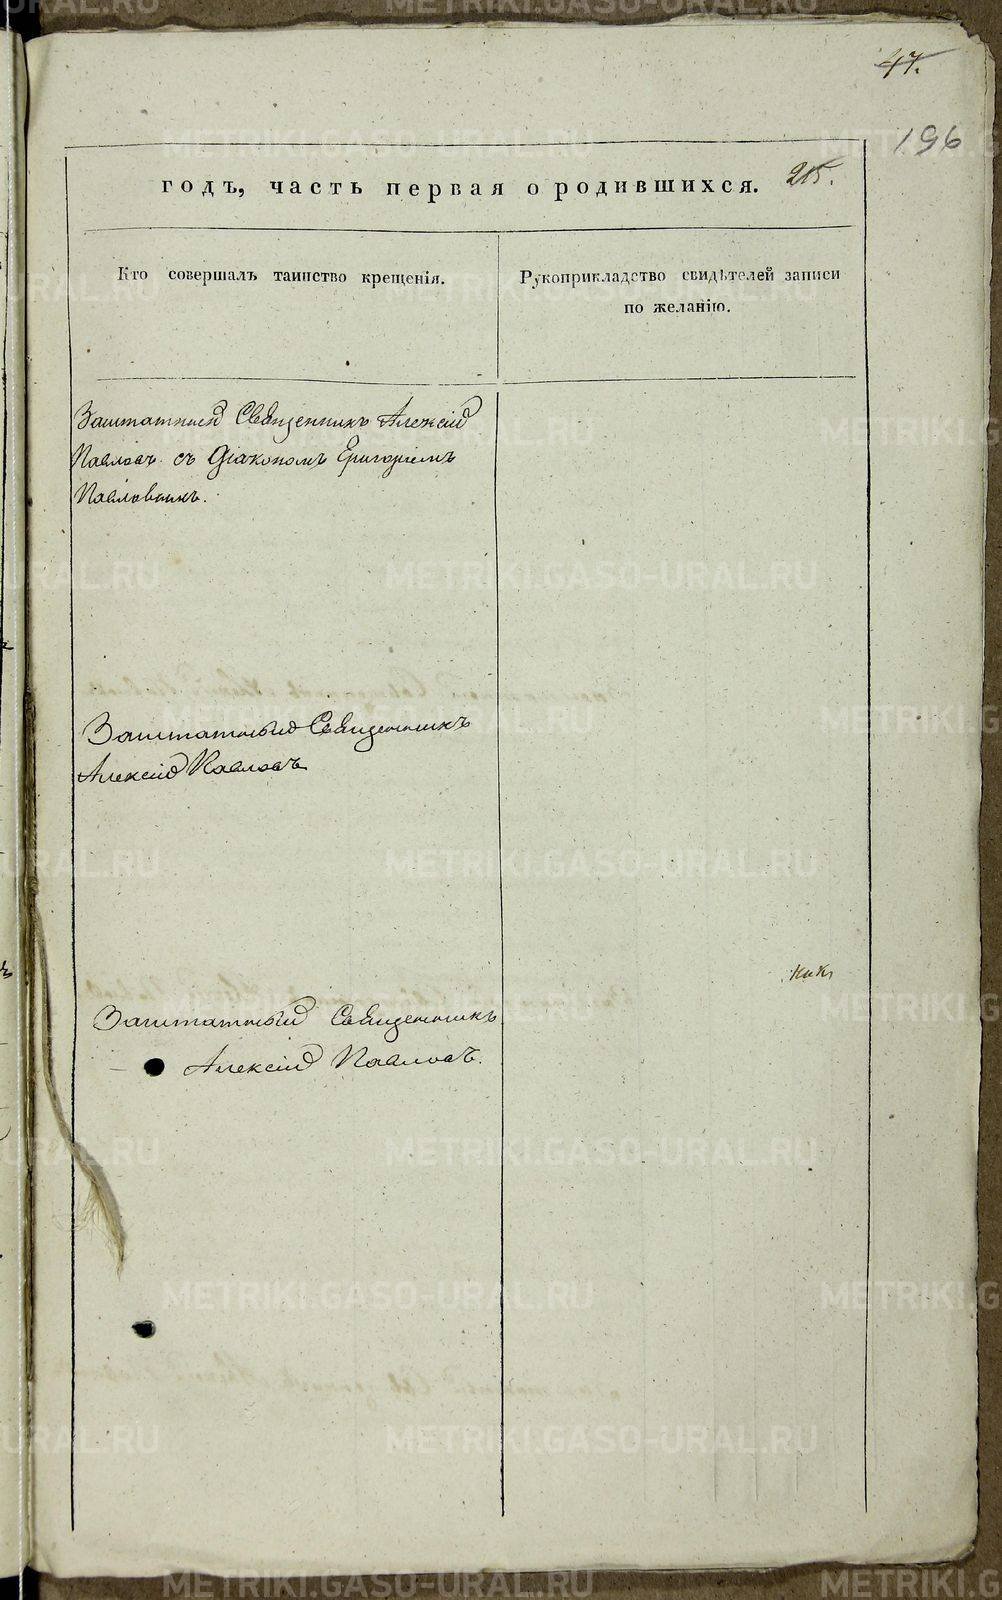 47.
196
годъ, часть первая о родившихся. 215.
Кто совершалъ таинство крещенія.
Рукоприкладство свидѣтелей записи
по желанію.
Заштатный Священникъ Алексій
Павловъ съ Діакономъ Григоріемъ
Заштатный Священникъ
Алексій Павловъ
Заштатный Священникъ
Алексій Павловъ.
METRIKI.GASO-URAL.RU